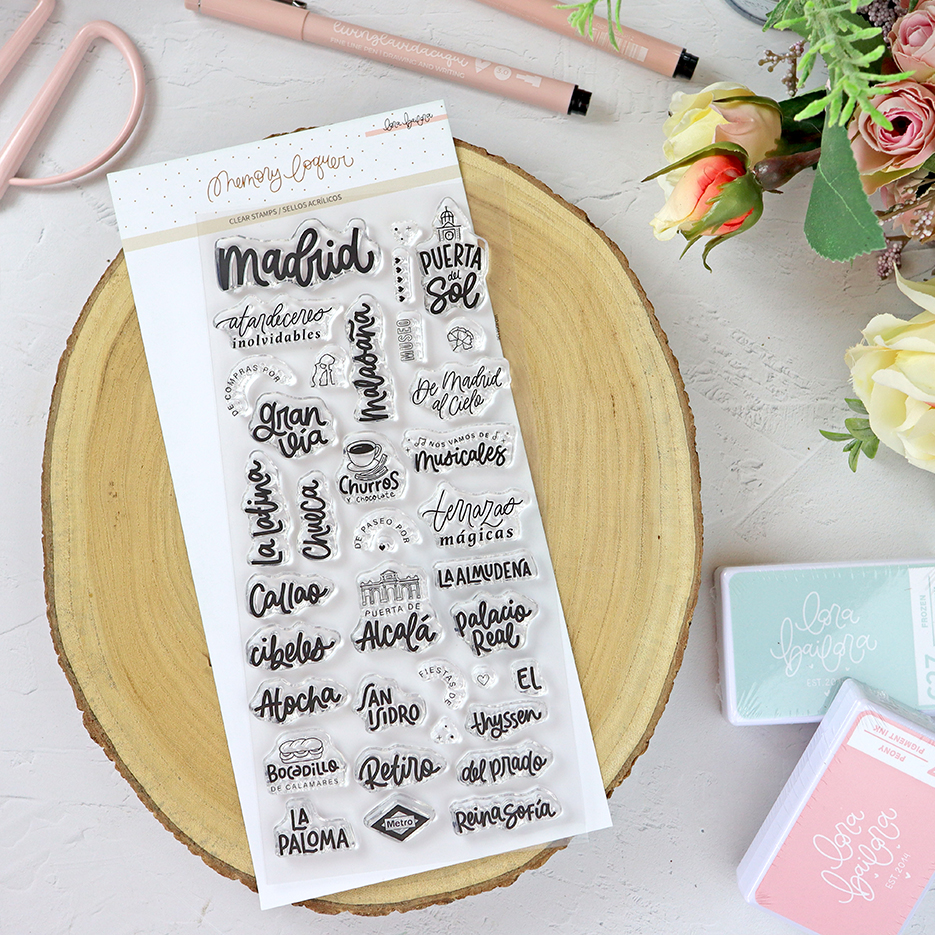 livinglavidacuqui
FINE LINE PEN | DRAWING AND WRITING
lora bailora
Memory loquer
CLEAR STAMPS / SELLOS ACRÍLICOS
Madrid
PUERTA
del
Sol
atardeceres
inolvidables
Malasaña
MUSEO
DE COMPRAS POR
gran
vía
De Madrid
al Cielo
NOS VAMOS DE
Musicales
CHURROS
Y CHOCOLATE
La Latina
Chueca
DE PASEO POR
terrazas
mágicas
Callao
PUERTA DE
Alcalá
LA ALMUDENA
cibeles
palacio
Real
Atocha
SAN
ISIDRO
FIESTAS DE
EL
thyssen
BOCADILLO
DE CALAMARES
Retiro
del prado
LA
PALOMA
Metro
Reina Sofía
lora
bailora
EST. 2014
FROZEN
lora
bailora
EST. 2014
PEONY
PIGMENT INK